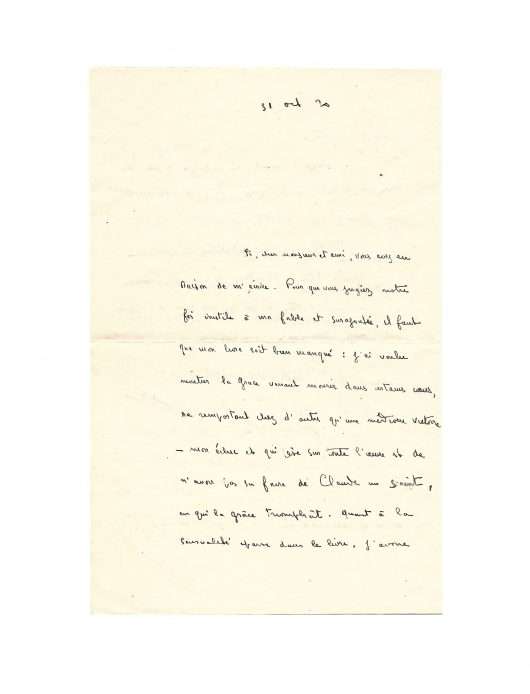 31 oct 20
Si, cher monsieur et ami, vous avez eu
raison de m'écrire. Pour que vous jugiez notre
foi inutile à ma fable et surajoutée, il faut
que mon livre soit bien manqué : j'ai voulu
montrer la Grace venant mourir dans certains cœurs,
ne remportant chez d'autres qu'une médiocre victoire
– mon échec et qui pèse sur toute l'œuvre est de
n'avoir pas su faire de Claude un saint,
en qui la grâce triomphât. Quant à la
sensualité éparse dans le livre, j'avoue